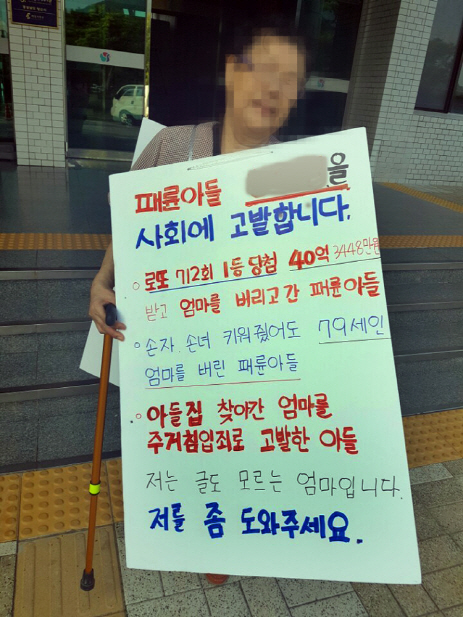 패륜아들 을
사회에 고발합니다.
로또 712회 1등 당첨 40억 3448만원
받고 엄마를 버리고 간 패륜아들
손자. 손녀 키워줬어도 79세인
엄마를 버린 패륜아들
아들집 찾아간 엄마를
주거침입죄로 고발한 아들
저는 글도 모르는 엄마입니다.
저를 좀 도와주세요.